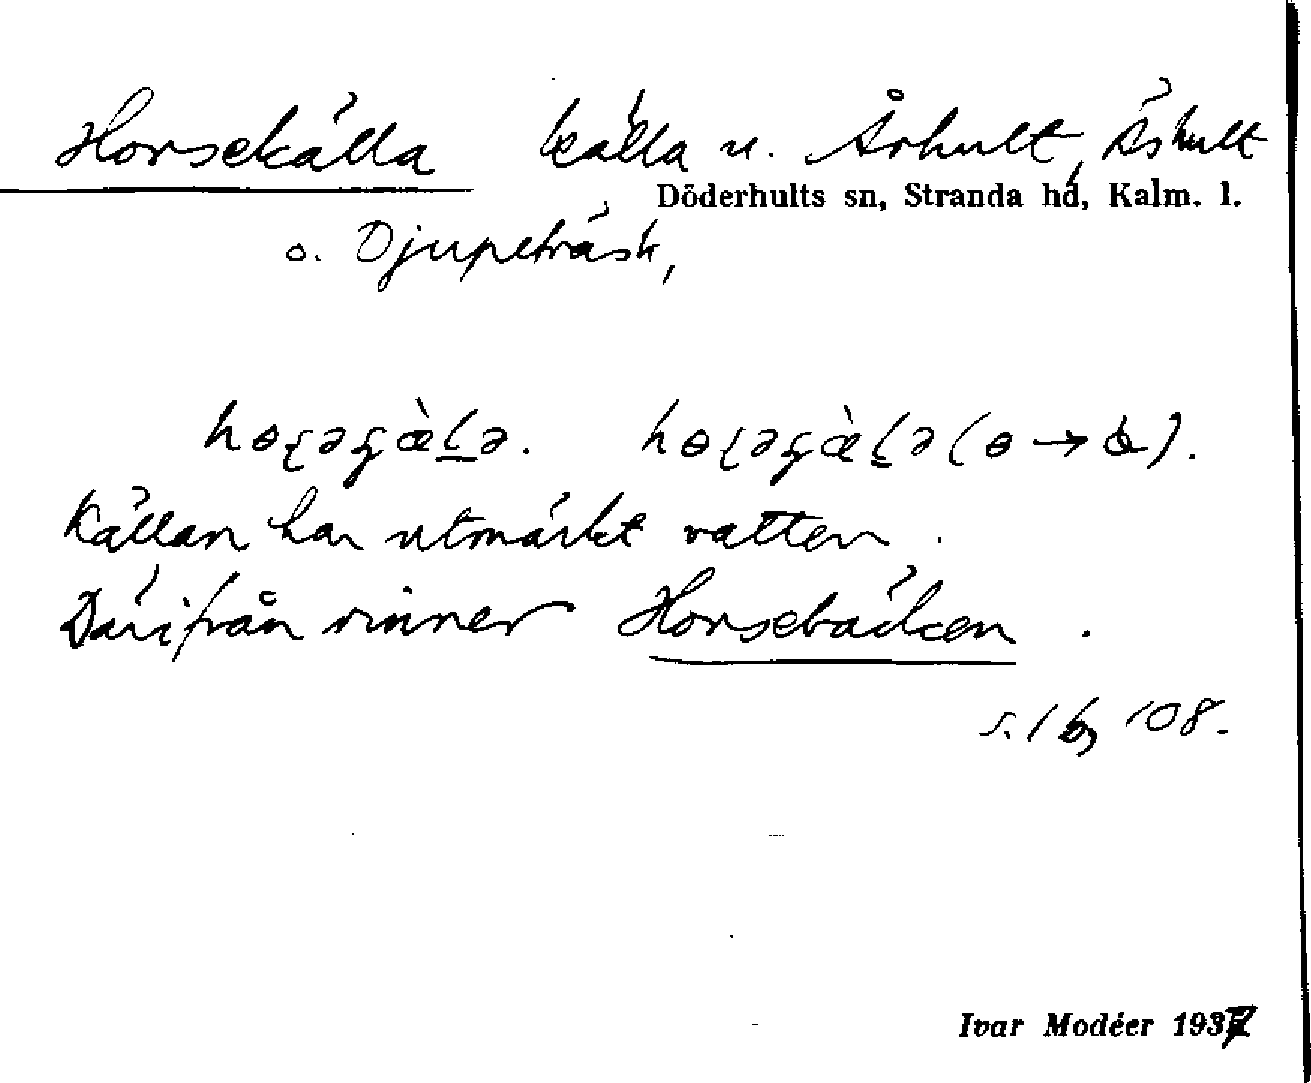 Horsekälla källa u. Århult, Äshult
Döderhults sn, Stranda hd, Kalm. l.
o. Djupeträsk,
Källan har utmärkt vatten.
Därifrån rinner Horsebäcken.
108.
Ivar Modéer 1937